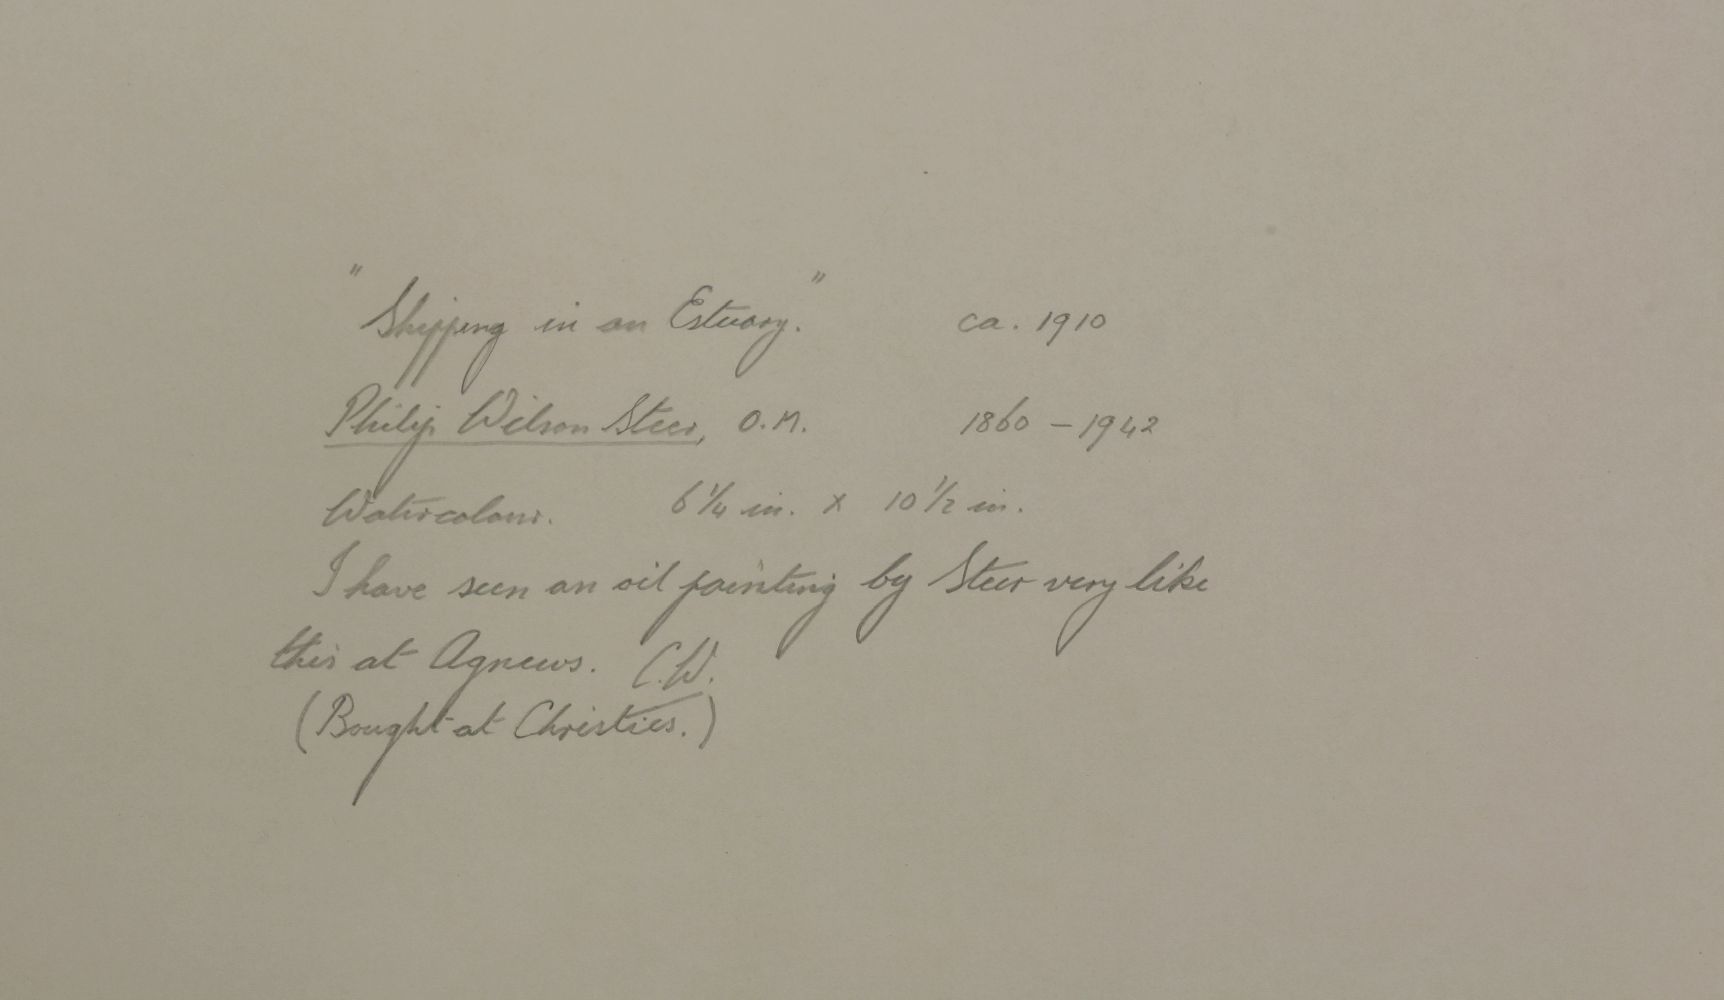 "Shipping in an Estuary." ca. 1910
Philip Wilson Steer, O.M. 1860 - 1942
Watercolour. 6 1/4 in. x 10 1/2 in.
I have seen an oil painting by Steer very like
this at Agnews. C.W.
(Bought at Christies.)